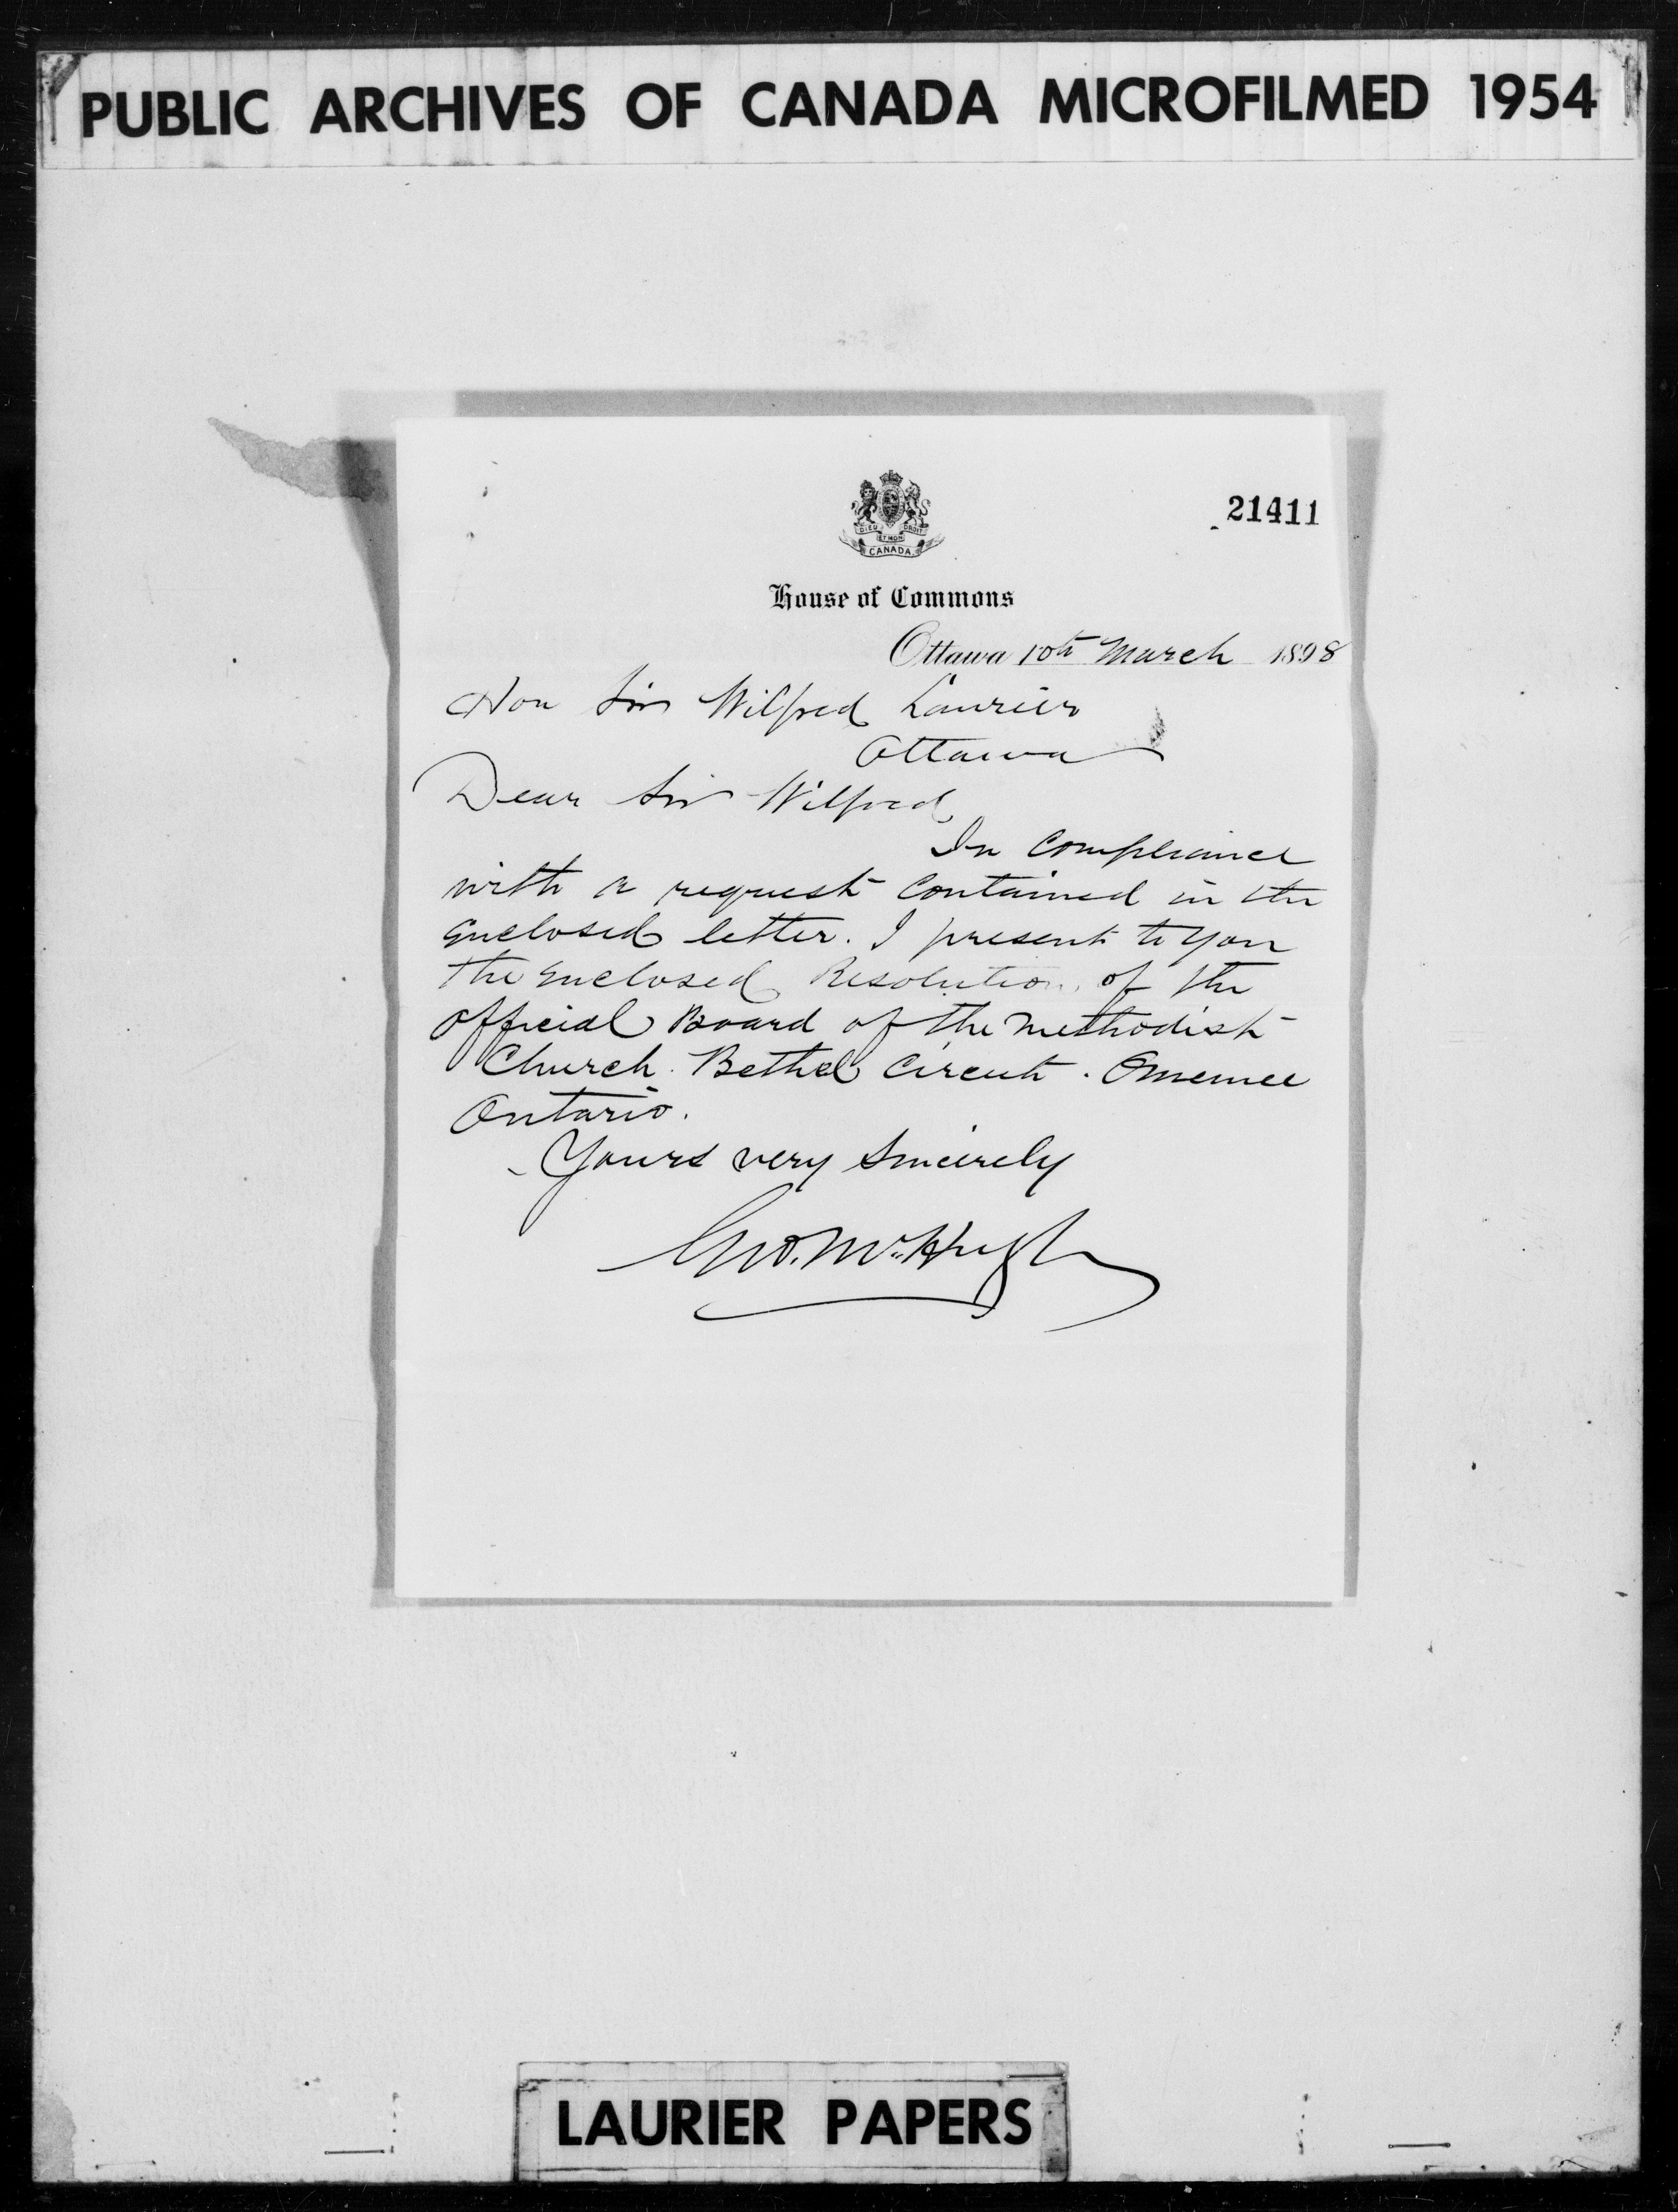 PUBLIC ARCHIVES OF CANADA MICROFILMED 1954
21411
DIEU ET MON DROIT
CANADA
House of Commons
Ottawa 10th March 1898
Hon Sir Wilfred Laurier
Ottawa
Dear Sir Wilfred
In Compliance
with a request contained in the
enclosed letter. I present to you
the enclosed Resolution of the
Official Board of the Methodist
Church. Bethel Circuit. Omemee
Ontario.
Yours very Sincerely
Geo. McHugh
LAURIER PAPERS